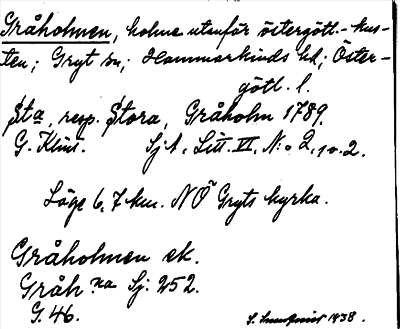 Gråholmen, holme utanför östergötl.-kus-
ten; Gryt sn; Hammarkinds hd; Öster-
götl. l.
Sta, resp. Stora, Gråholm 1789.
G. Klint. Sj.A. Litt. VI. N:o 2, 10.2.
Läge 6,7 km. NÖ Gryts kyrka.
Gråholmen ek.
Gråh:na Sj: 252.
G. 46.
S. 1938.